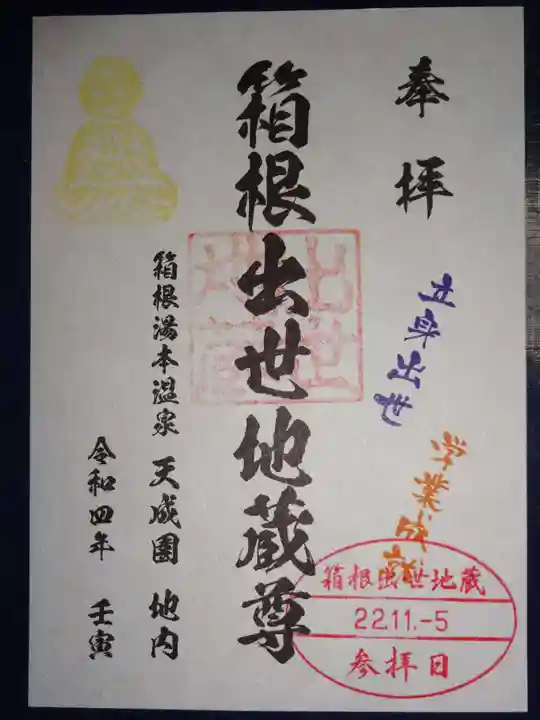 奉拝
立身出世
学業成就
箱根出世地蔵尊
出世
地蔵
箱根湯本温泉 天成園 地内
令和四年 壬寅
箱根出世地蔵
22.11.-5
参拝日